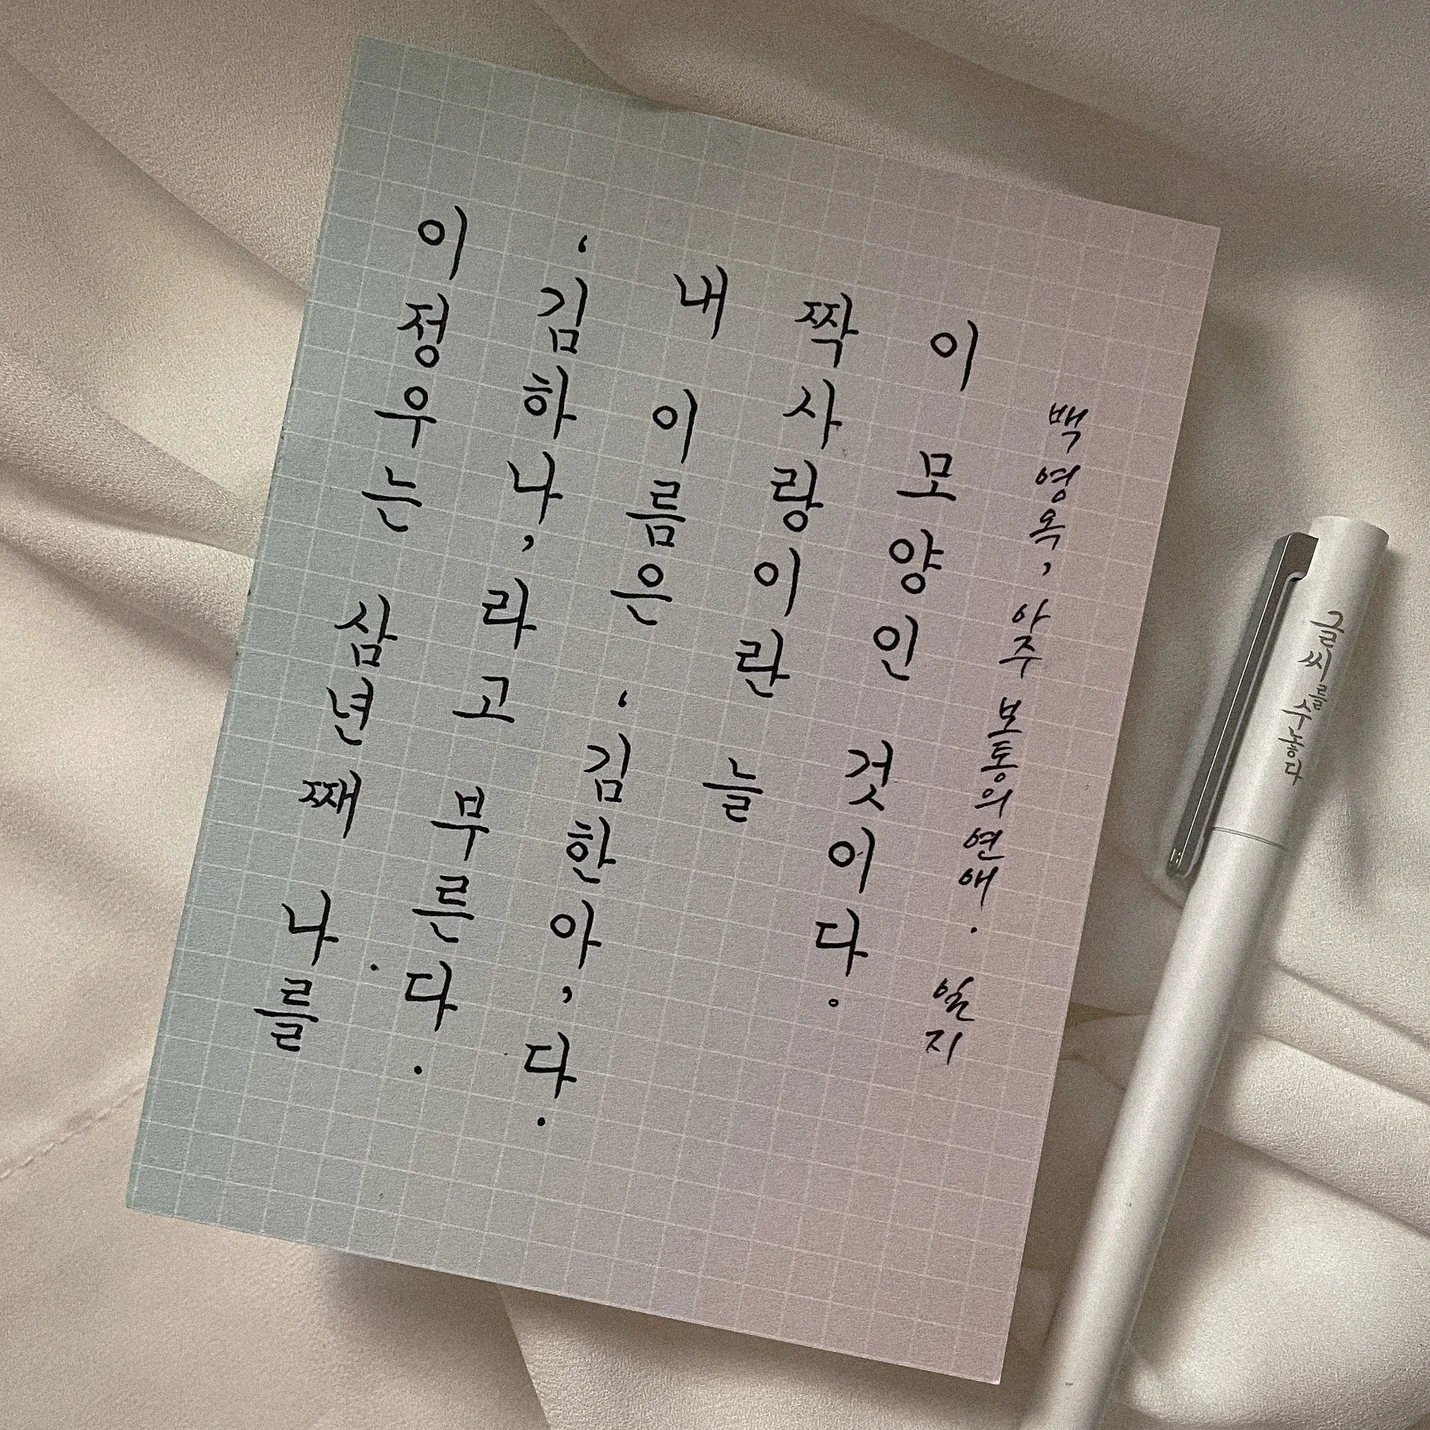 이정우는 삼년째 나를
‘김하나’라고 부른다.
내 이름은 ‘김한아’다.
짝사랑이란 늘
이 모양인 것이다。
백영옥, 아주 보통의 연애.
글씨를 수놓다